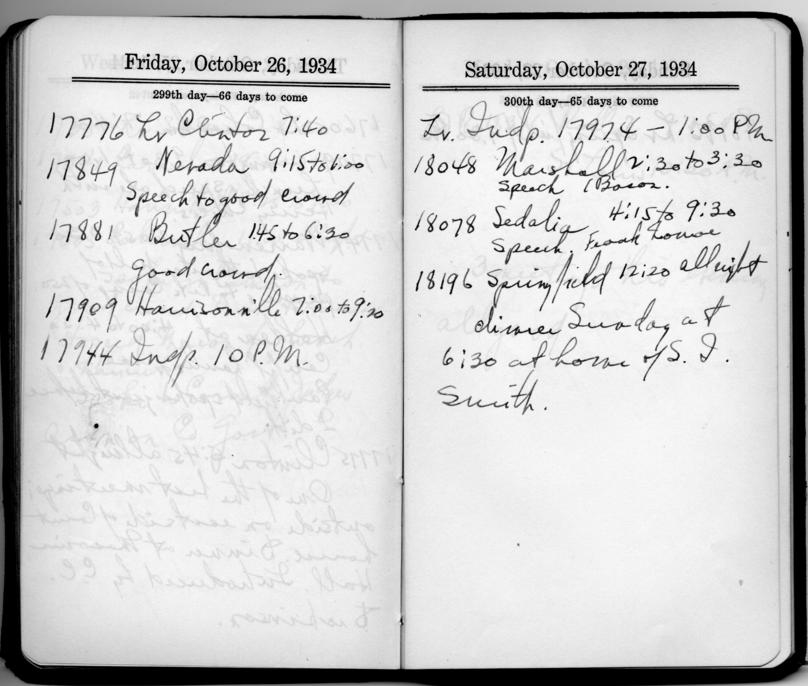 Friday, October 26, 1934
299th day—66 days to come
17776 Lv Clinton 7:40
17849 Nevada 9:15 to 1:00
Speech to good crowd
17881 Butler 1:45 to 6:30
Good crowd.
17909 Harrisonville 7:00 to 9:20
17944 Indp. 10 P.M.
Saturday, October 27, 1934
300th day—65 days to come
Lv. Indp. 17974 — 1:00 P.M.
18048 Marshall 2:30 to 3:30
Speech
18078 Sedalia 4:15 to 9:30
Speech. Frank
18196 Springfield 12:20 all night
dinner Sunday at
6:30 at home of S. I.
Smith.